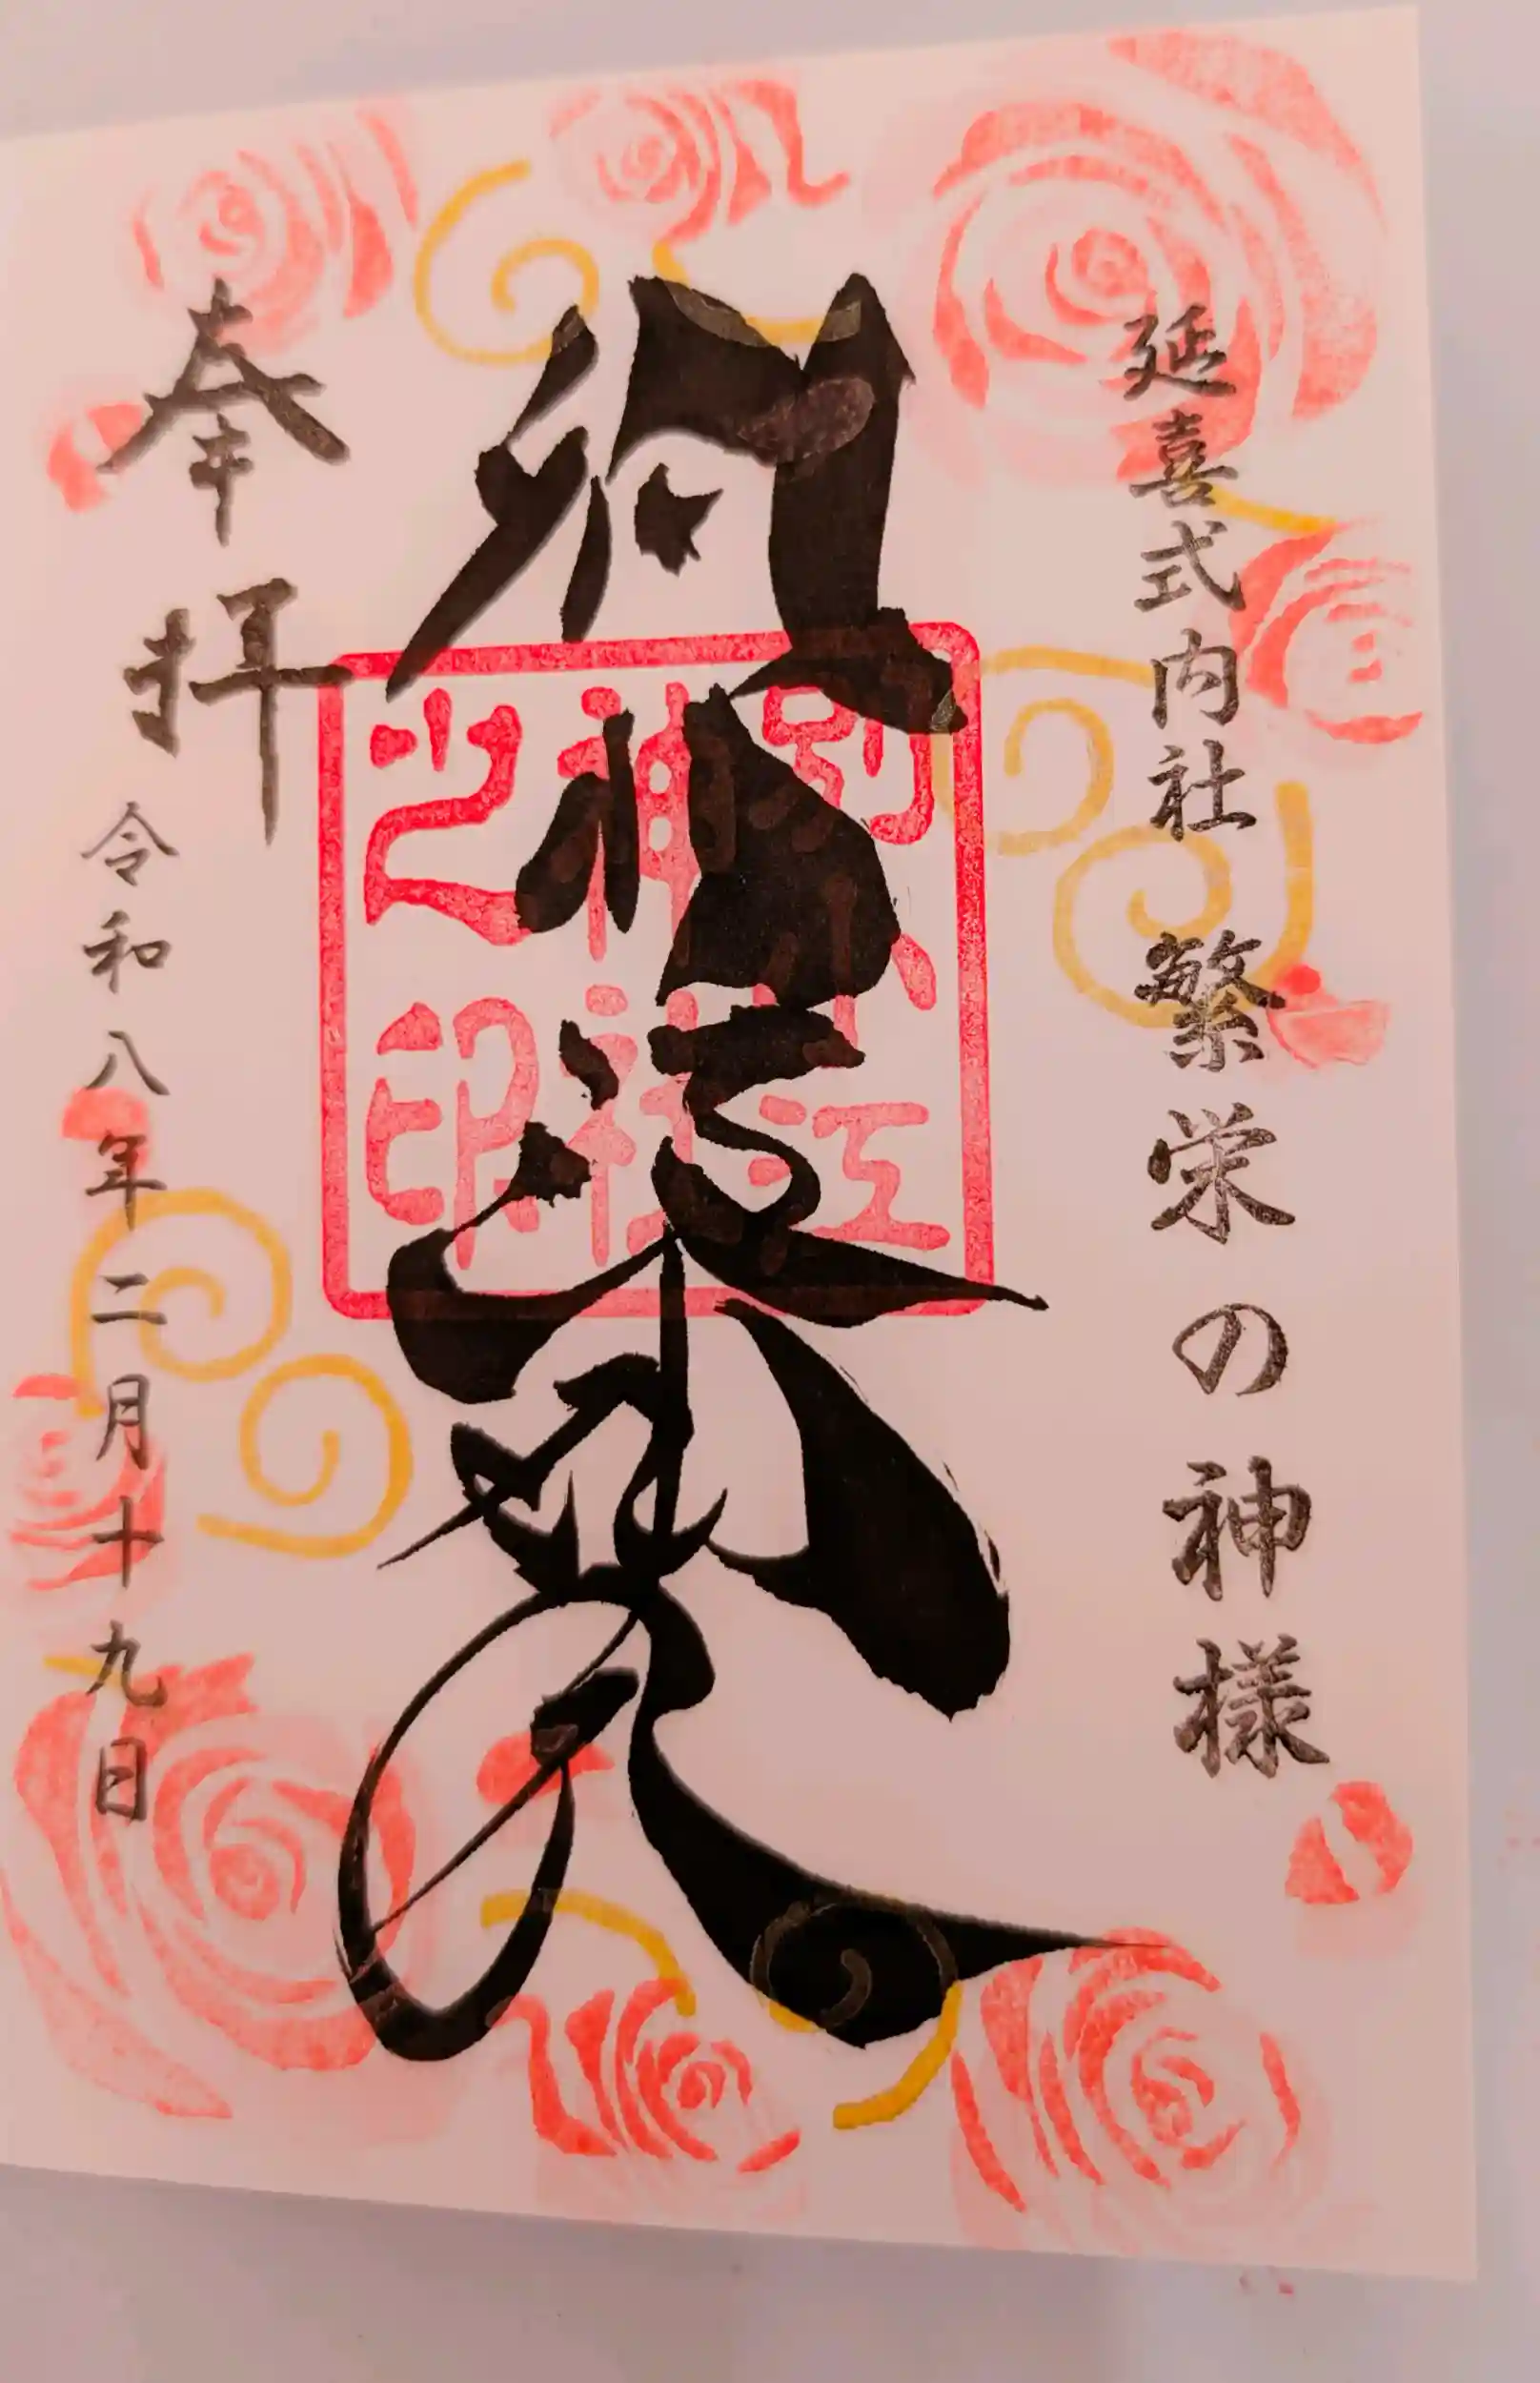 延喜式内社 繁栄の神様
別小江
神社
之印
奉拝
令和八年二月十九日